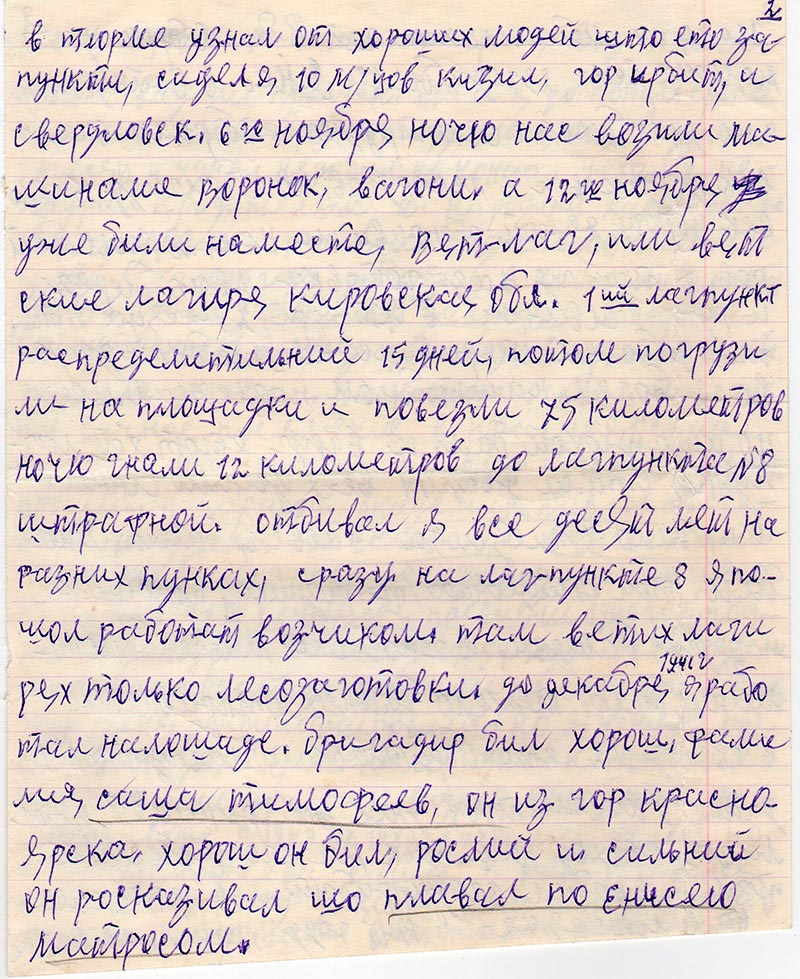 2
в тюрме узнал от хороших людей што ето за-
пункти, сиделя 10 м/цов кизил, гор ирбит, и
свердловск. 6 го ноября ночю нас возили ма-
шинамя воронок, вагони. а 12 го ноября
уже били наместе, вят-лаг, или вят
ские лагиря кировская обл. 1ий лагпункт
распределительний 15 дней, потом погрузи
ли на площадки и повезли 75 километров
ночю гнали 12 километров до лагпункта №8
штрафной. отбивал я все десят лет на
разних пунках, сразу на лаг-пункте 8 я по-
шол работат возчиком. там ветих лаги
рях только лесозаготовки. до декабря 1941г я рабо
тал налошаде. бригадир бил хорош, фами
лия, саша тимофеев, он из гор красно-
ярска. хорош он бил, рослий и сильний
он росказивал шо плавал по енисею
матросом.